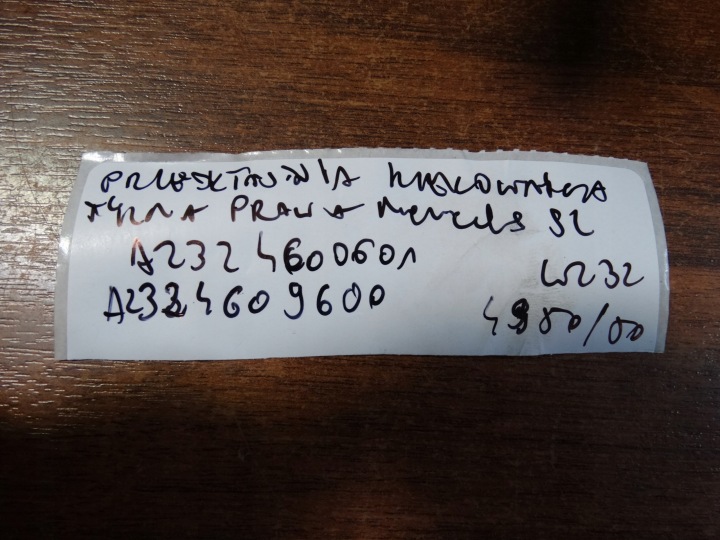 PRZEKŁADNIA KIEROWNICZA
TYLNA PRAWA Mercedes SL
A2324600601
A2324609600
W232
4980/00